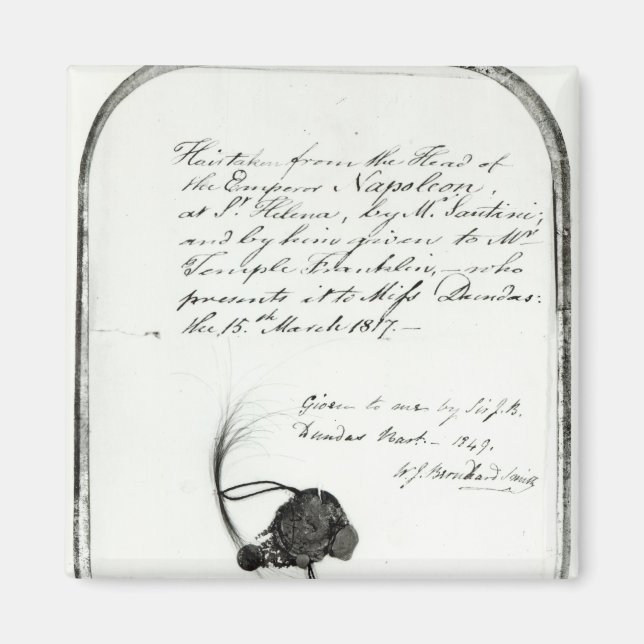 Hair taken from the Head of
the Emperor Napoleon,
at St. Helena, by M. Santini;
and by him given to Mr
Temple Franklin, – who
presents it to Miss Dundas:
the 15.th March 1817. –
Given to me by Sir J. B.
Dundas Bart. – 1849.
W. J. Bernhard Smith